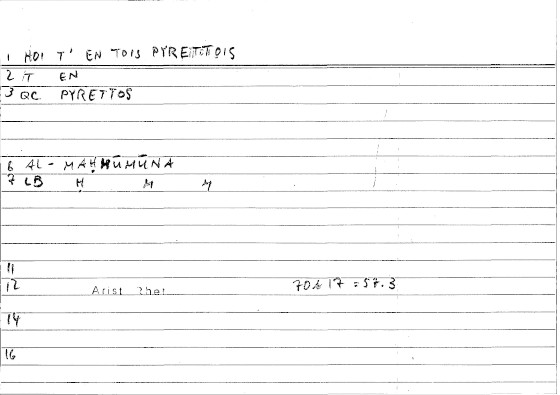 1 HOI T' EN TOIS PYRETTOIS
2 IT EN
3 QC PYRETTOS
6 AL - MAḤMŪMŪNA
7 LB Ḥ M M
11
12 Arist Rhet 70b17 = 57.3
14
16